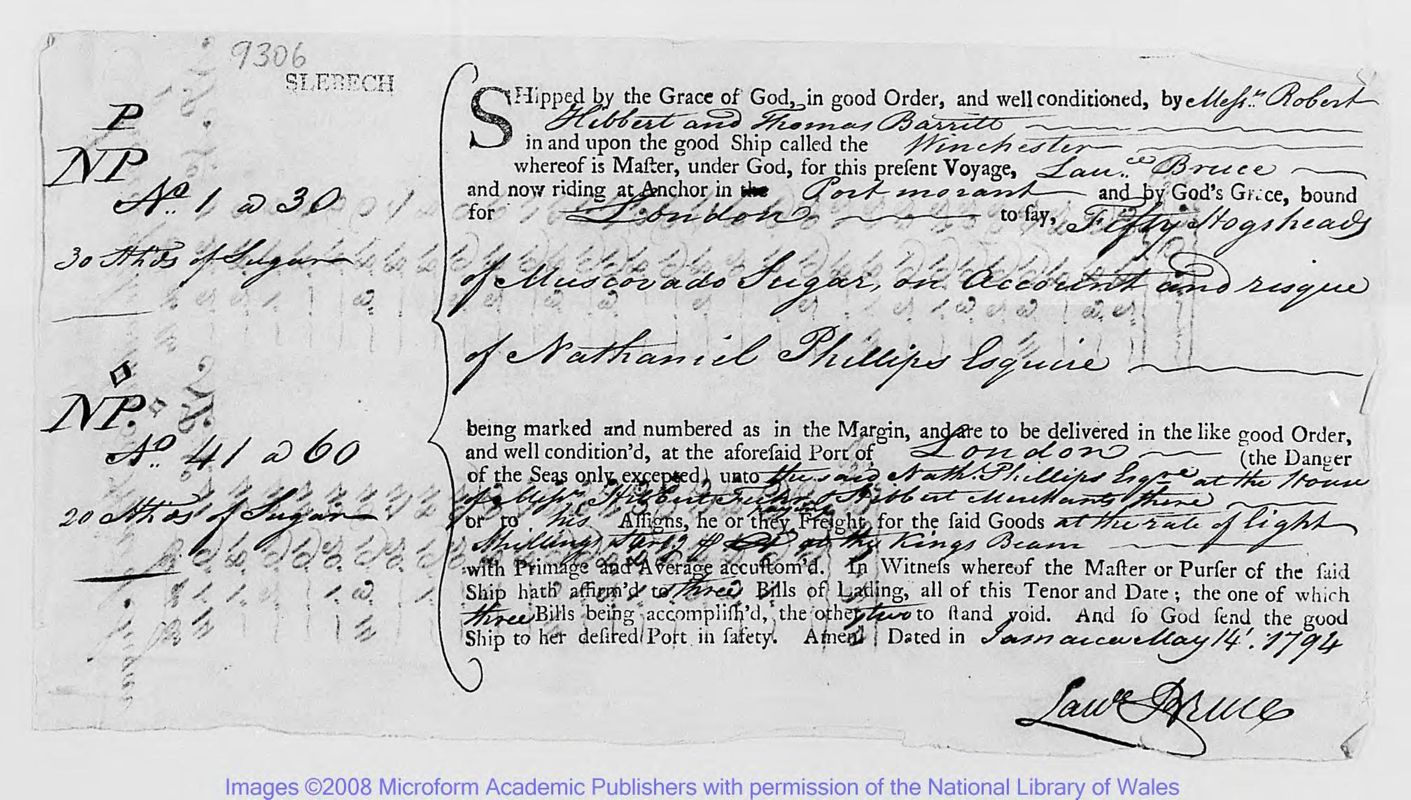 9306
SLEBECH
P
NP
No. 1 a 30
30 Hhds of Sugar
◇
NP.
No. 41 a 60
20 Hhds of Sugar
SHipped by the Grace of God, in good Order, and well conditioned, by Messrs. Robert
Hibbert and Thomas Barritt
in and upon the good Ship called the Winchester
whereof is Maſter, under God, for this preſent Voyage, Lawce. Bruce
and now riding at Anchor in the Port morant and by God's Grace, bound
for London to ſay, Fifty Hogsheads
of Muscovado Sugar, on Account and risque
of Nathaniel Phillips Esquire
being marked and numbered as in the Margin, and are to be delivered in the like good Order,
and well condition'd, at the aforeſaid Port of London (the Danger
of the Seas only excepted) unto the said Nath. Phillips Esqre at the House
of Messrs Hibbert & Hibbert Merchants there
or to his Aſſigns, he or they Freight for the ſaid Goods at the rate of Eight
Shillings Sterg at the Kings Beam
with Primage and Average accuſtom'd. In Witneſs whereof the Maſter or Purſer of the ſaid
Ship hath affirm'd to three Bills of Lading, all of this Tenor and Date; the one of which
three Bills being accompliſh'd, the other two to ſtand void. And ſo God ſend the good
Ship to her deſired Port in ſafety. Amen Dated in Jamaica May 14. 1794
Lawce Bruce
Images ©2008 Microform Academic Publishers with permission of the National Library of Wales